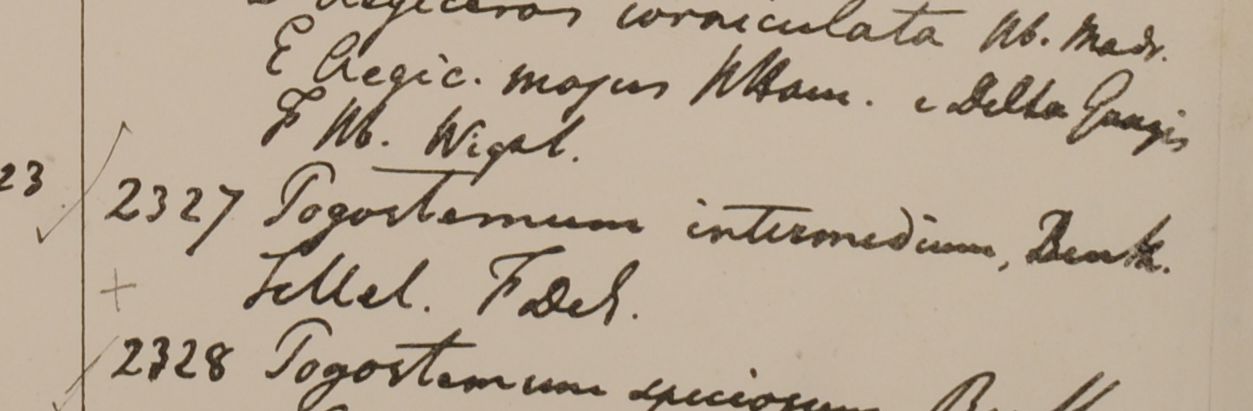 D Aegiceras corniculata Hb. Madr.
E Aegic. majus HHam. e Delta Gangis
F Hb. Wight.
23 2327 Pogostemum intermedium, Benth.
+ Sillet. F Des.
2328 Pogostemum speciosum Benth